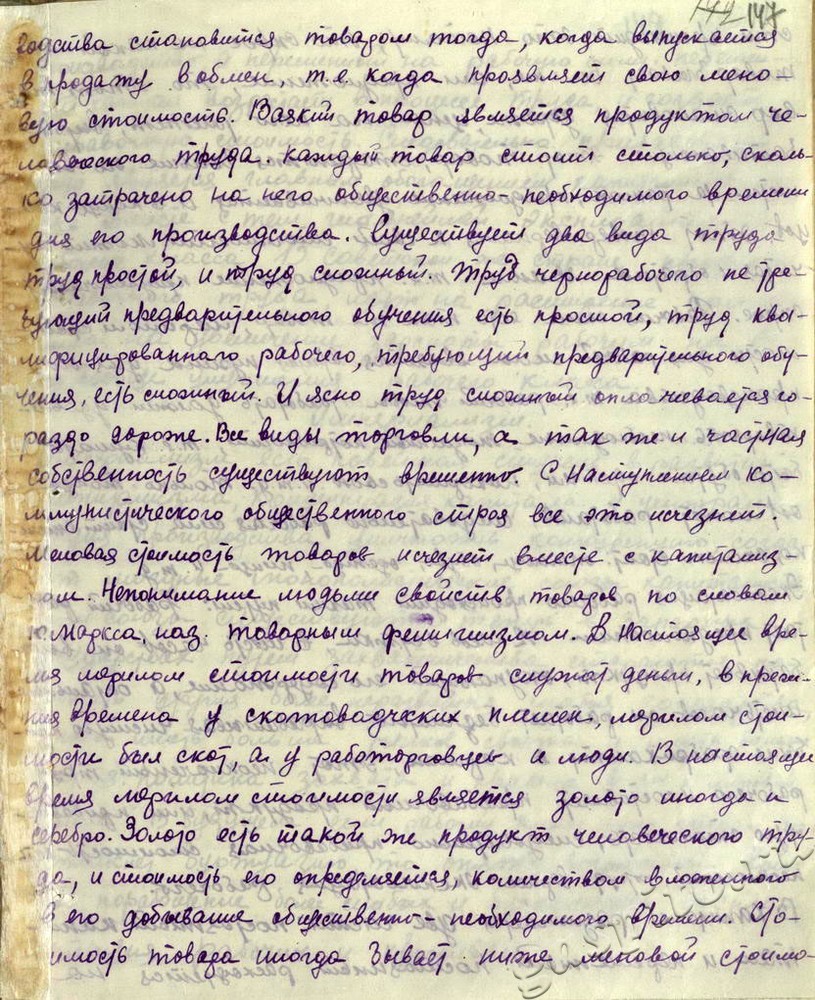 142 147
водства становится товаром тогда, когда выпускается
в продажу в обмен, т.е. когда проявляет свою мено-
вую стоимость. Всякий товар является продуктом че-
ловеческого труда. Каждый товар стоит столько, сколь-
ко затрачено на него общественно-необходимого времени
для его производства. Существует два вида труда
труд простой, и труд сложный. Труд чернорабочего не тре-
бующий предварительного обучения есть простой, труд ква-
лифицированнаго рабочего, требующий предварительного обу-
чения, есть сложный. И ясно труд сложный оплачивается го-
раздо дороже. Все виды торговли, а так же и частная
собственность существуют временно. С наступлением ко-
ммунистического общественного строя все это исчезнет.
Меновая стоимость товаров исчезнет вместе с капитализ-
мом. Непонимание людьми свойств товаров по словам
К. Маркса, наз. товарным фетишизмом. В настоящее вре-
мя мерилом стоимости товаров служат деньги, в преж-
ния времена у скотоводческих племен, мерилом стои-
мости был скот, а у работорговцев и люди. В настоящее
время мерилом стоимости является золото иногда и
серебро. Золото есть такой же продукт человеческого тру-
да, и стоимость его определяется, количеством вложенного
в его добывание общественно-необходимого времени. Сто-
имость товара иногда бывает ниже меновой стоимо-